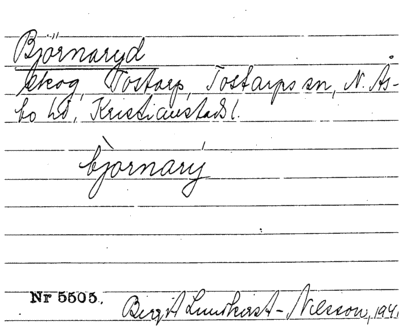 Björnaryd
Skog, Tostarp, Tostarps sn, N. Ås-
bo hd, Kristianstads l.
björnarý
Nr 5505.
Birgit Lundkvist-Nilsson, 194